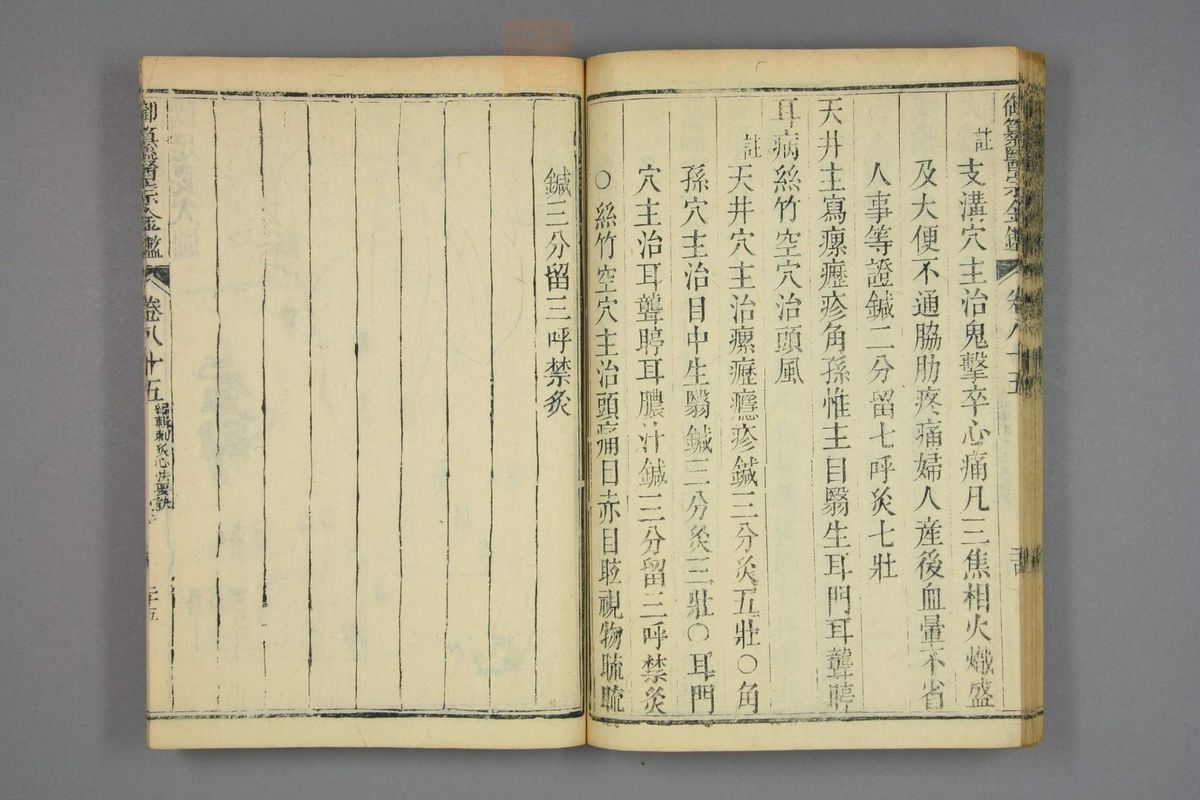 御纂醫宗金鑑
卷八十五
註支溝穴主治鬼擊卒心痛凡三焦相火熾盛
及大便不通脇肋疼痛婦人産後血暈不省
人事等證鍼二分留七呼灸七壯
天井主寫瘰癧疹角孫惟主目翳生耳門耳聾聤
耳病絲竹空穴治頭風
註天井穴主治瘰癧癮疹鍼三分灸五壯〇角
孫穴主治目中生翳鍼三分灸三壯〇耳門
穴主治耳聾聤耳膿汁鍼三分留三呼禁灸
〇絲竹空穴主治頭痛目赤目眩視物䀮䀮
鍼三分留三呼禁灸
御纂醫宗金鑑
卷八十五
編輯刺灸心法要訣
二十五